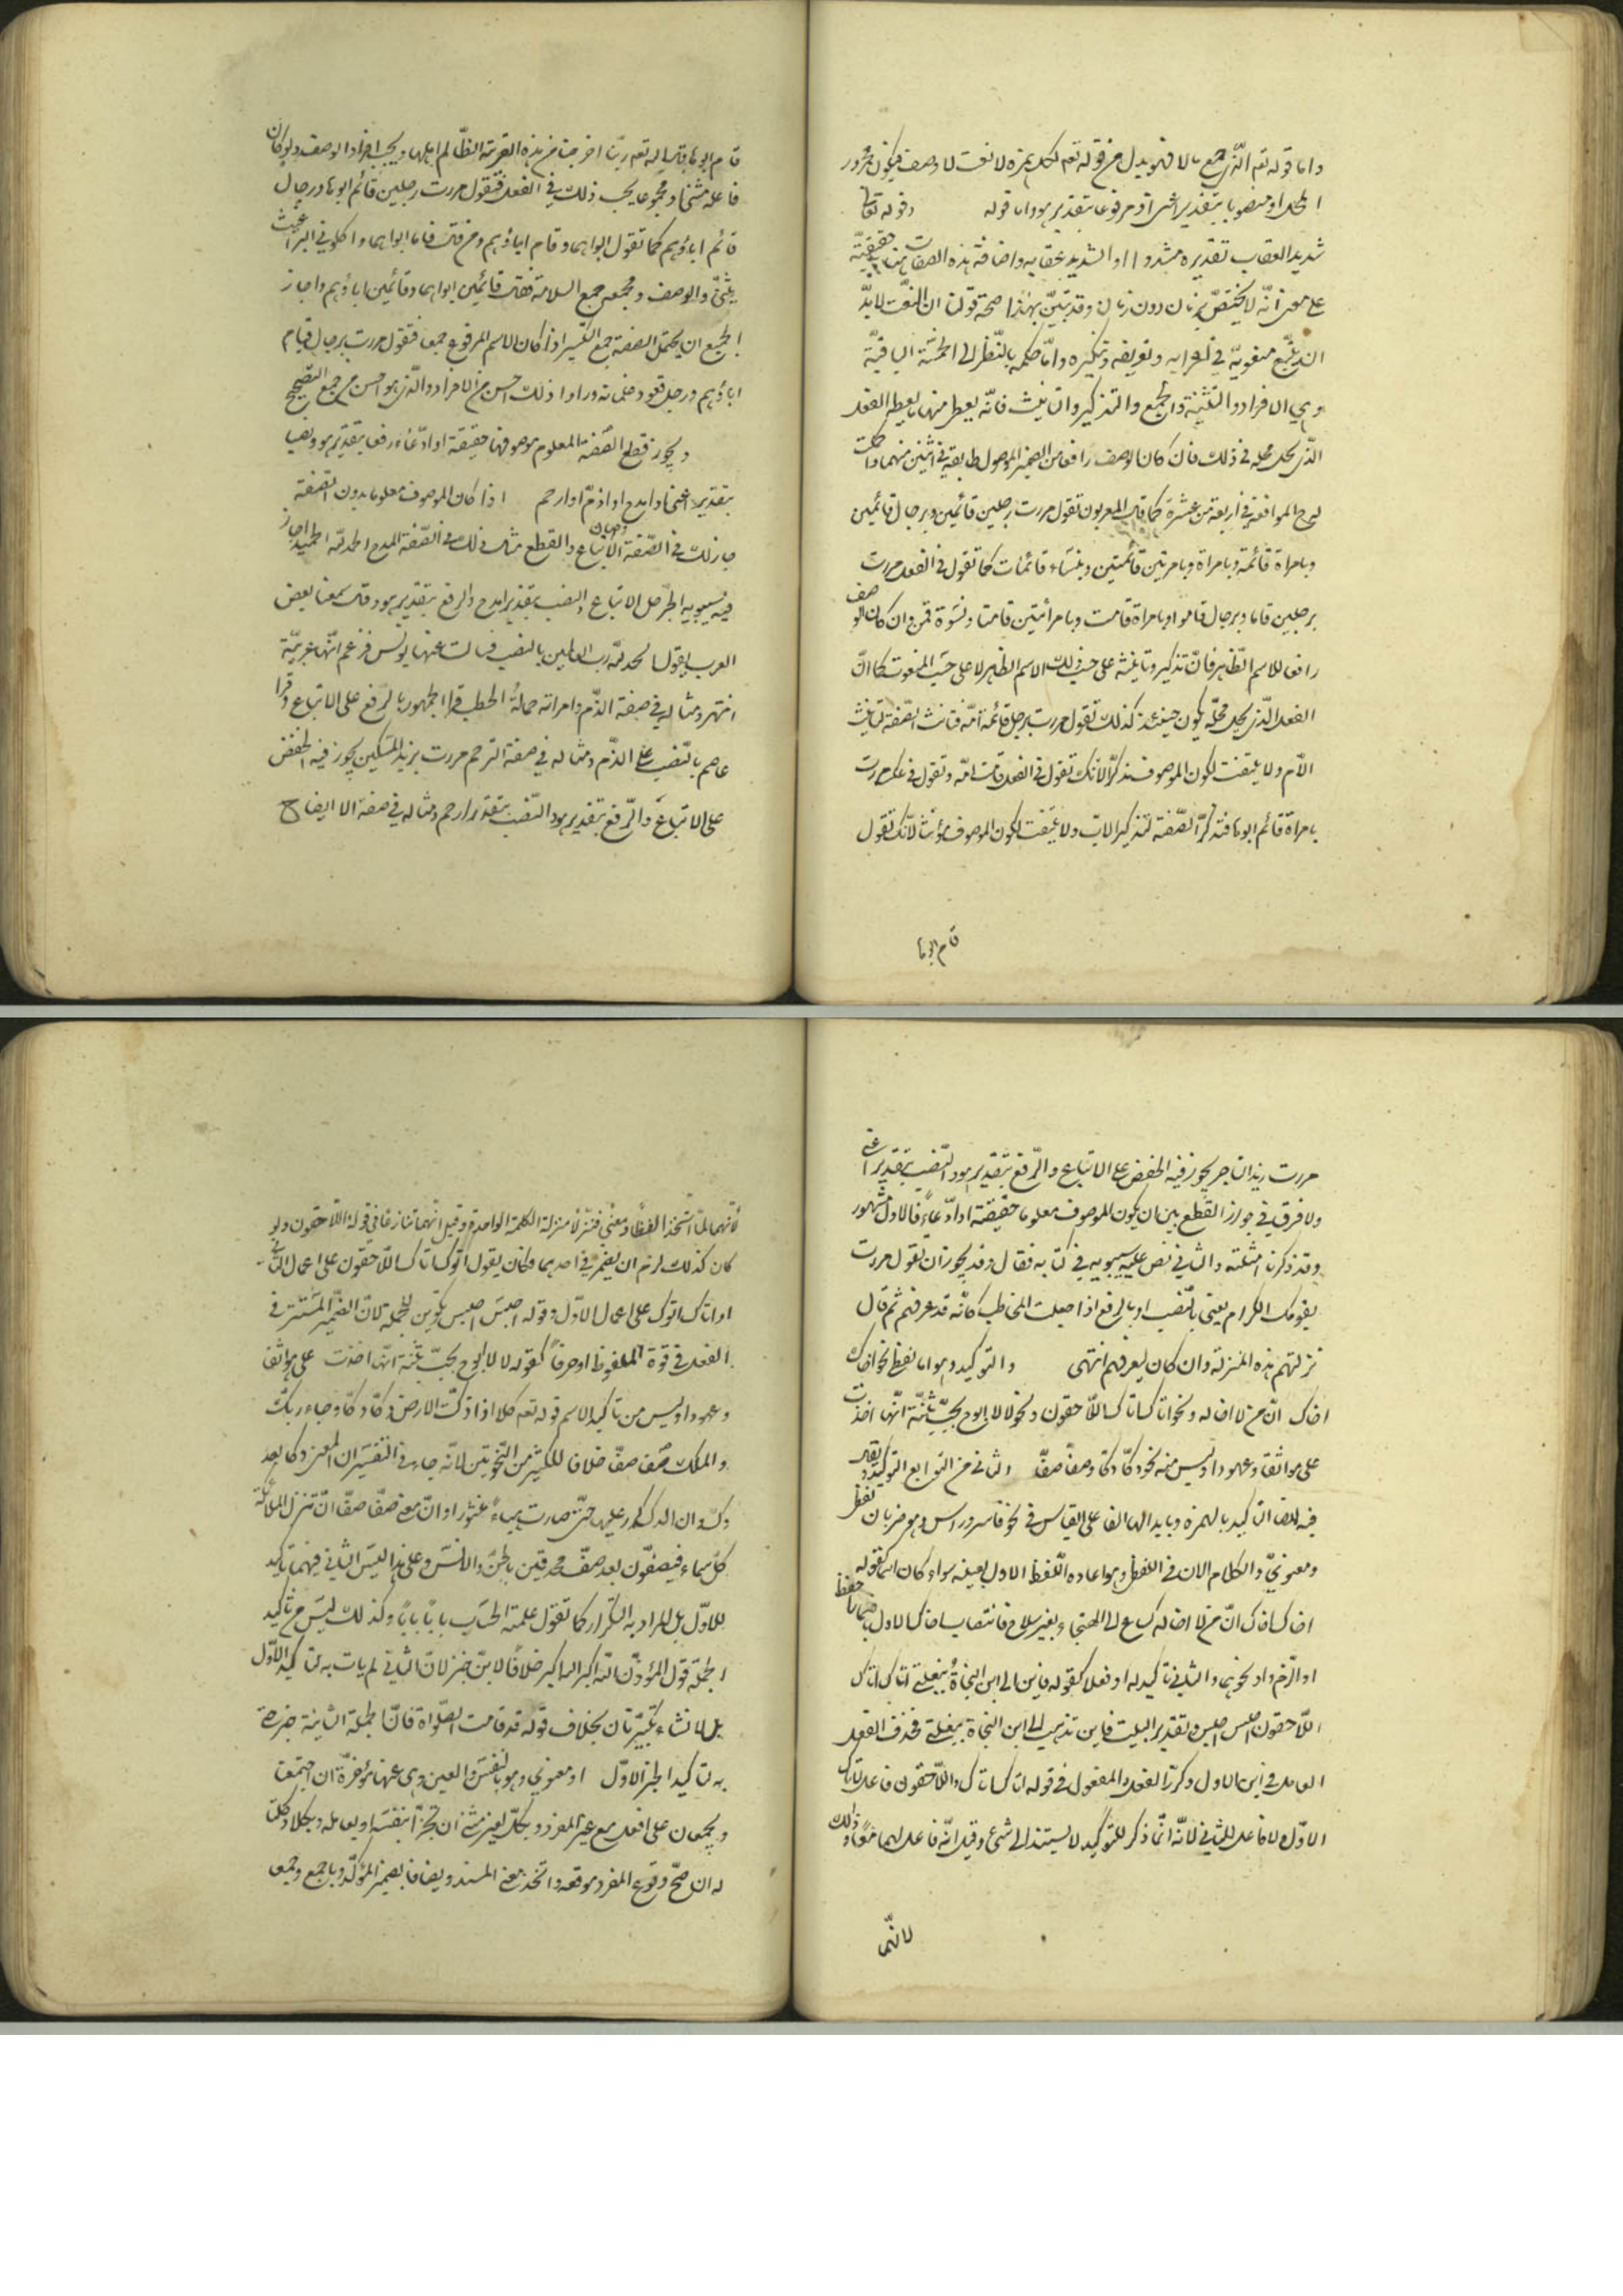 واما قوله تعه الذى جمع مالا فهو بدل من قوله تعه لكل همزه لا نعت لا وصف فيكون مجرور
المحل او منصوبا بتقدير اعنى او مرفوعا بتقدير هو واما قوله وقوله تعالى
شديد العقاب تقديره مشدد ا او الشديد عقابه واضافة هذه الصفات حقيقيّة
على معنى انّه لا يختصّ بزمان دون زمان وقد تبيّن بهذا صحة قولنا ان النّعت لابدّ
ان يتبع منعوتيه في اعرابه وتعريفه وتنكيره وامّا حكمه بالنّظر الى الخمسة الباقيّة
وهي الافراد والتّثنية والجمع والتذكير والتانيث فانّه يعطى منها ما يعطى الفعل
الّذى يحل محله فى ذلك فان كان الوصف رافعا من الضمير الموصوف طابقه في اثنين منهما وكملت
له ح الموافقة في اربعة من عشرة كما قال المعربون تقول مررت برجلين قائمين وبرجال قائمين
وبامراة قائمة وبامراتين قائمتين وبنساء قائمات كما تقول فى الفعل مررت
برجلين قاما وبرجال قاموا وبامراة قامت وبامراتين قامتا ونسوة قمن وان كان الوصف
رافعا للاسم الظّاهر فانّ تذكيره وتانيثه على حسب ذلك الاسم الظاهر لا على حسب المنعوت كما انّ
الفعل الّذى يحل محلّه يكون حينئذ كذلك تقول مررت برجل قائمة امّه فتانث الصّفة لتانيث
الامّ ولا يلتفت لكون الموصوف مذكرّا لانك تقول فى الفعل قامت امّه وتقول فى عكسه مررت
بامراة قائم ابوها فتذكرّ الصّفة لتذكير الاب ولا يلتفت لكون الموصوف مؤنثا لانّك تقول
قام ابوها
قام ابوها قال الله تعه ربّنا اخرجنا من هذه القرية الظّالم اهلها ويجب افراد الوصف ولو كان
فاعله مثنى او مجموعا يجب ذلك فى الفعل فتقول مررت رجلين قائم ابوها وبرجال
قائم اباؤهم كما تقول ابواهما وقام اباؤهم ومن قال قاما ابواهما واكلونى البراغيث
يثنّى والوصف وجمعه جمع السلامة فقال قائمين ابواهما وقائمين اباؤهم واجاز
الجميع ان يحتمل الصفة جمع التّكسير اذا كان الاسم المرفوع جمعا فتقول مررت برجال قيام
اباؤهم ورجل قعود غلمانه وراوا ذلك احسن من الافراد والّذى هو احسن من جمع التّصحيح
ويجوز قطع الصّفة المعلوم موصوفها حقيقة او ادّعاء رفعا بتقدير هو ونصبا
بتقدير اعنى او امدح او اذمّ او ارحم اذا كان الموصوف معلوما بدون الصّفة
جاز لك فى الصّفة الاتباع والقطع مثال ذلك فى الصّفة المدح الحمد لله الحميد اجاز
فيه سيبويه الجرّ على الاتباع والنصب بتقدير امدح والرفع بتقدير هو وقال سمعنا بعض
العرب يقول الحمد لله رب العالمين بالنصب فسالت عنها يونس فزعم انّها عربيّة
انتهى ومثاله فى صفة الذّم وامراته حمالةُ الحطب قرا الجمهور بالرّفع على الاتباع وقرا
عاصم بالنّصب على الذّم ومثاله في صفة الترحم مررت بزيد المسكين يجوز فيه الخفض
على الاتباع والرّفع بتقدير هو والنّصب بتقدير ارحم ومثاله في صفة الايضاح
مررت بزيد التاجر يجوز فيه الخفض على الاتباع والرّفع بتقدير هو والنّصب بتقدير اعنى
ولا فرق فى جواز القطع بين ان يكون الموصوف معلوما حقيقة او ادّعاءً فالاول مشهور
وقد ذكرنا امثلته والثانى نص عليه سيبويه فى كتابه فقال وقد يجوز ان تقول مررت
بقومك الكرام يعنى بالنّصب او بالرفع اذا جعلت المخاطب كانّه قد عرفهم ثم قال
نزلتهم هذه المنزلة وان كان لم يعرفهم انتهى والتوكيد وهو اما لفظى نحو اخاك
اخاك انّ من لا اخا له ونحو اتاك اتاك اللّاحقون ونحو لا لا ابوح بحبّ بثنة انّها اخذت
على مواثقا وعهودا وليس منه نحو دكّا دكّا وصفّا صفّا والثانى من التوابع التوكيد ويقال
فيه ايضا التاكيد بالهمزه وبابدالها الفا على القياس فى نحو فاس وراس وهو ضربان لفظى
ومعنوىّ والكلام الان فى اللفظى وهو اعاده اللّفظ الاول بعينه سواء كان اسما كقوله
اخاك اخاك انّ من لا اخا له كساع الى الهيجاء بغير سلاح فانتصاب اخاك الاول باضمار احفظ
او الزم او نحوهما والثاني تاكيد له او فعلا كقوله فاين الى اين النجاةُ ببغلتى اتاك اتاك
اللّاحقون احبس احبس وتقدير البيت فاين تذهب الى اين النجاة ببغلتى فحذف الفعل
العامل فى اين الاول وكرّر الفعل والمفعول فى قوله اتاك اتاك واللّاحقون فاعل باتاك
الاوّل ولا فاعل للثانى لانّه انّما ذكر للتوكيد لا ليستند الى شئ وقيل انّه فاعل لهما معًا وذلك
لانّهما
لأنّهما لمّا اتّحدا لفظًا ومعنًى فنزّلا منزلة الكلمة الواحدة وقيل انّهما تنازعا فى قوله اللّاحقون ولو
كان كذلك لزم ان يضمر فى احدهما وكان يقول اتوك اتاك اللّاحقون على اعمال الثّانى
او اتاك اتوك على اعمال الاوّل وقوله احبس احبس تكرير للجملة لانّ الضّمير المستتر فى
الفعل فى قوّة الملفوظ او حرفًا كقوله لا لا ابوح بحبّ بثنة انّها اخذت على مواثقا
وعهودا وليس من تاكيد الاسم قوله تعه كلا اذا دكّت الارض دكّا دكّا وجاء ربّك
والملك صفّا صفّا خلافا للكثير من النّحويّين لانّه جاء فى التّفسير ان المعنى دكا بعد
دكّ وان الدك كرر عليها حتّى صارت هباءً منثورا وانّ معنى صفّا صفّا انّ تنزل الملائكة
كل سماء فيصفّون بعد صفّ محدقين بالجنّ والانس وعلى هذا ليس الثانى فيهما تاكيد
للاوّل بل المراد به التكرار كما تقول علمته الحساب بابًا بابًا وكذلك ليس من تاكيد
الجملة قول المؤذّن الله اكبر الله اكبر خلافًا لابن جنى لانّ الثانى لم يات به لتاكيد الاوّل
بل لانشاء تكبير ثان بخلاف قوله قد قامت الصلواة فانّ الجملة الثانية خبر ثان
به لتاكيد الخبر الاوّل او معنوى وهو بالنفس والعين مؤخرّة عنها ان اجتمعتا
ويجمعان على افعل مع غير المفرد وبكلّ لغير مثنى ان تجزّأ بنفسه او بعامله وبكلا وكلتا
له ان صحّ وقوع المفرد موقعه واتّحد معنى المسند ويضاف لضمير المؤكّد وباجمع وجمعا